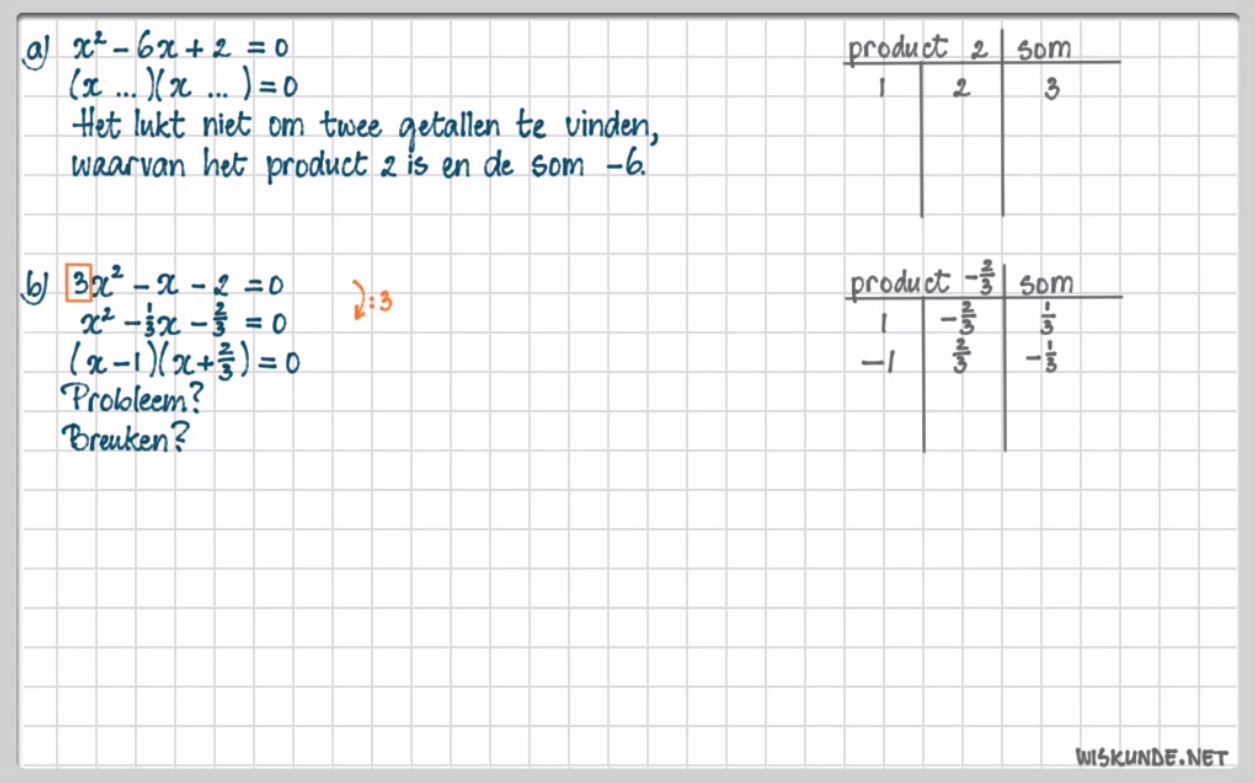 a) x² - 6x + 2 = 0
(x ...)(x ...) = 0
Het lukt niet om twee getallen te vinden,
waarvan het product 2 is en de som -6.
product 2 | som
1 | 2 | 3
b) 3x² - x - 2 = 0
:3
x² - ⅓x - ⅔ = 0
(x - 1)(x + ⅔) = 0
Probleem?
Breuken?
product -⅔ | som
1 | -⅔ | ⅓
-1 | ⅔ | -⅓
WISKUNDE.NET